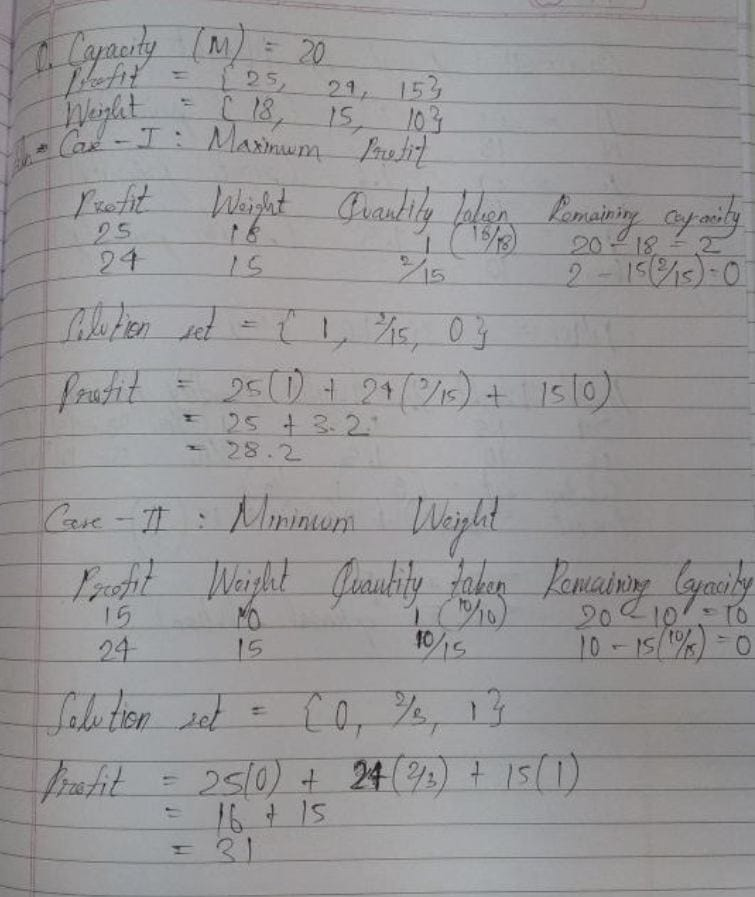 Q. Capacity (M) = 20
Profit = {25, 24, 15}
Weight = {18, 15, 10}
Case - I : Maximum Profit
Profit Weight Quantity taken Remaining capacity
25 18 1 (18/18) 20 - 18 = 2
24 15 2/15 2 - 15(2/15) = 0
Solution set = { 1, 2/15, 0 }
Profit = 25(1) + 24(2/15) + 15(0)
= 25 + 3.2
= 28.2
Case - II : Minimum Weight
Profit Weight Quantity taken Remaining Capacity
15 10 1 (10/10) 20 - 10 = 10
24 15 10/15 10 - 15(10/15) = 0
Solution set = {0, 2/3, 1}
Profit = 25(0) + 24(2/3) + 15(1)
= 16 + 15
= 31